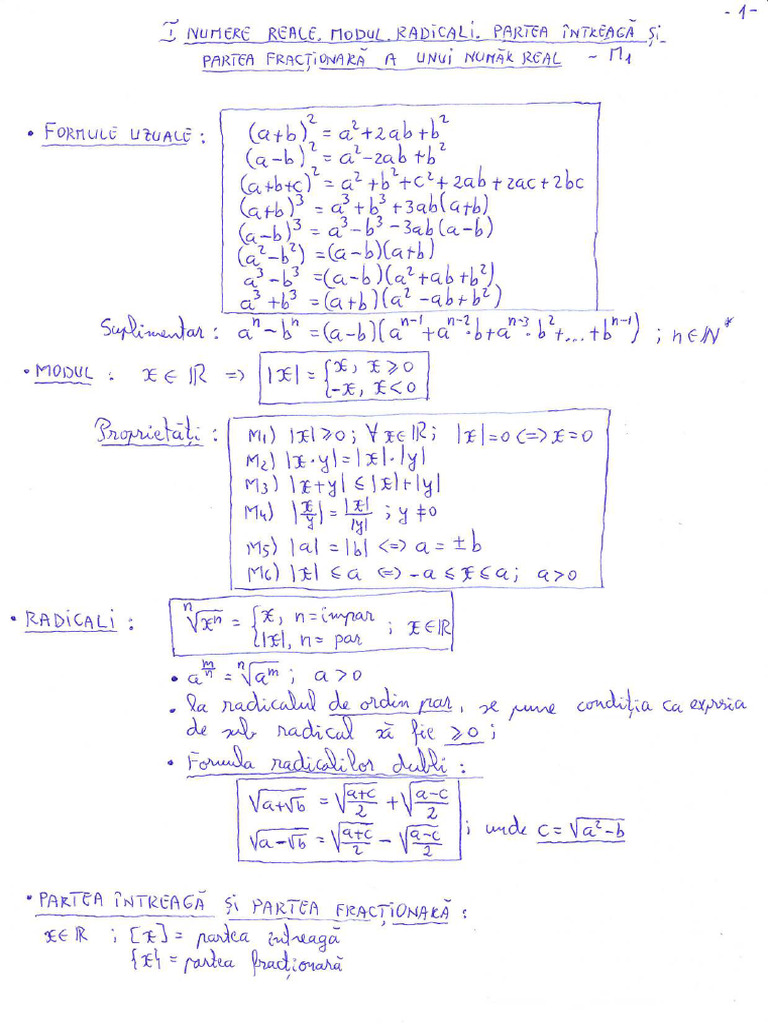 - 1 -
I NUMERE REALE. MODUL. RADICALI. PARTEA ÎNTREAGĂ ȘI
PARTEA FRACȚIONARĂ A UNUI NUMĂR REAL - M1
• FORMULE UZUALE :
(a+b)² = a²+2ab+b²
(a-b)² = a²-2ab+b²
(a+b+c)² = a²+b²+c²+2ab+2ac+2bc
(a+b)³ = a³+b³+3ab(a+b)
(a-b)³ = a³-b³-3ab(a-b)
(a²-b²) = (a-b)(a+b)
a³-b³ = (a-b)(a²+ab+b²)
a³+b³ = (a+b)(a²-ab+b²)
Suplimentar : aⁿ-bⁿ = (a-b)(aⁿ⁻¹+aⁿ⁻²·b+aⁿ⁻³·b²+...+bⁿ⁻¹) ; n∈ℕ*
• MODUL : x∈ℝ => |x| = { x, x≥0
-x, x<0
Proprietăți :
M1) |x|≥0 ; ∀x∈ℝ; |x|=0 <=> x=0
M2) |x·y|=|x|·|y|
M3) |x+y|≤|x|+|y|
M4) |x/y|=|x|/|y| ; y≠0
M5) |a|=|b| <=> a=±b
M6) |x|≤a <=> -a≤x≤a; a>0
• RADICALI : ⁿ√xⁿ = { x, n=impar
|x|, n=par ; x∈ℝ
• a^(m/n) = ⁿ√a^m ; a>0
• la radicalul de ordin par, se pune condiția ca expresia
de sub radical să fie ≥0 ;
• Formula radicalilor dubli :
√(a+√b) = √((a+c)/2) + √((a-c)/2)
√(a-√b) = √((a+c)/2) - √((a-c)/2) ; unde c=√(a²-b)
• PARTEA ÎNTREAGĂ ȘI PARTEA FRACȚIONARĂ :
x∈ℝ ; [x] = partea întreagă
{x} = partea fracționară